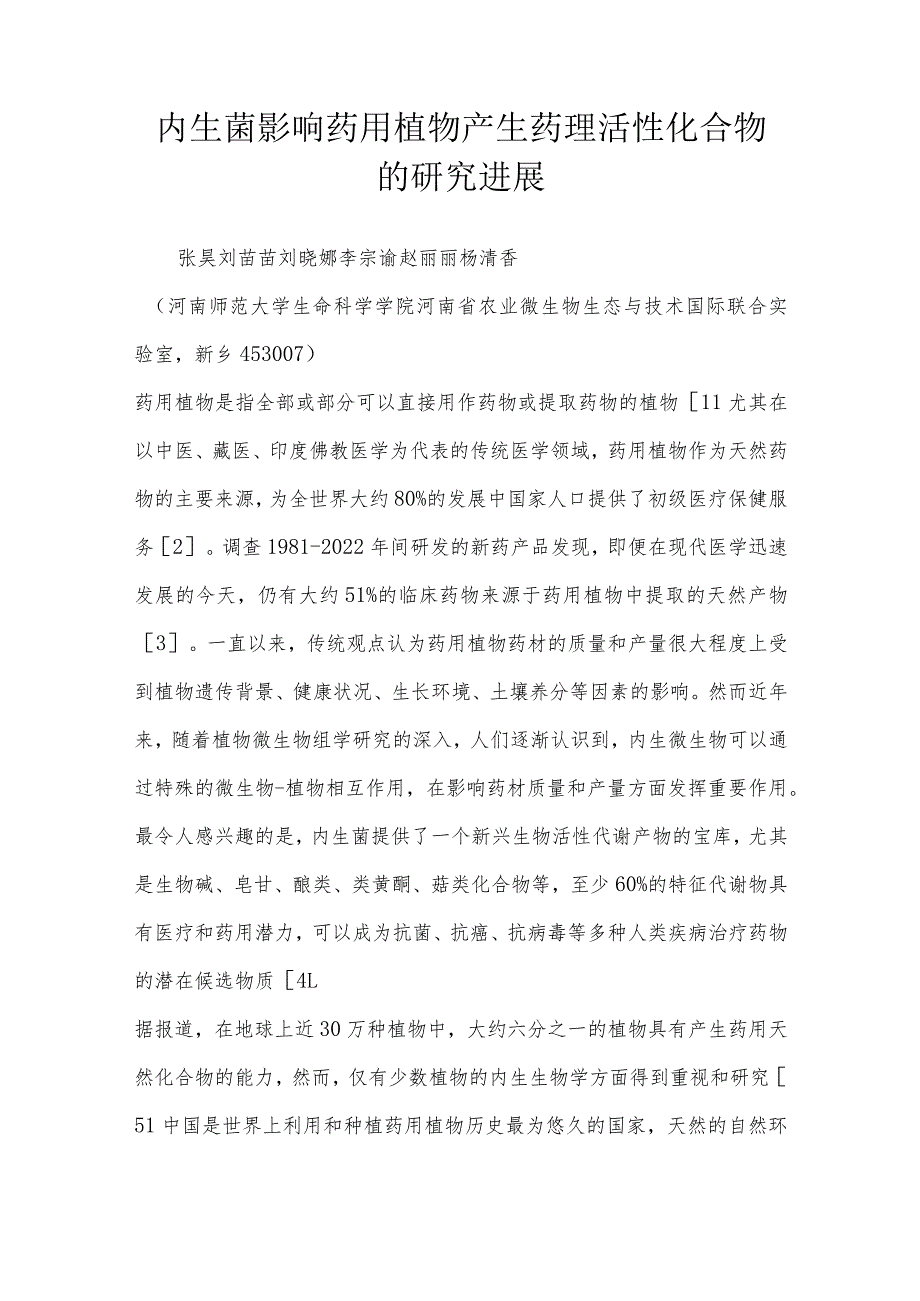 内生菌影响药用植物产生药理活性化合物
的研究进展
张昊刘苗苗刘晓娜李宗谕赵丽丽杨清香
（河南师范大学生命科学学院河南省农业微生物生态与技术国际联合实
验室，新乡 453007）
药用植物是指全部或部分可以直接用作药物或提取药物的植物［11 尤其在
以中医、藏医、印度佛教医学为代表的传统医学领域，药用植物作为天然药
物的主要来源，为全世界大约 80%的发展中国家人口提供了初级医疗保健服
务［2］。调查 1981-2022 年间研发的新药产品发现，即便在现代医学迅速
发展的今天，仍有大约 51%的临床药物来源于药用植物中提取的天然产物
［3］。一直以来，传统观点认为药用植物药材的质量和产量很大程度上受
到植物遗传背景、健康状况、生长环境、土壤养分等因素的影响。然而近年
来，随着植物微生物组学研究的深入，人们逐渐认识到，内生微生物可以通
过特殊的微生物-植物相互作用，在影响药材质量和产量方面发挥重要作用。
最令人感兴趣的是，内生菌提供了一个新兴生物活性代谢产物的宝库，尤其
是生物碱、皂甘、酿类、类黄酮、菇类化合物等，至少 60%的特征代谢物具
有医疗和药用潜力，可以成为抗菌、抗癌、抗病毒等多种人类疾病治疗药物
的潜在候选物质［4L
据报道，在地球上近 30 万种植物中，大约六分之一的植物具有产生药用天
然化合物的能力，然而，仅有少数植物的内生生物学方面得到重视和研究［
51 中国是世界上利用和种植药用植物历史最为悠久的国家，天然的自然环